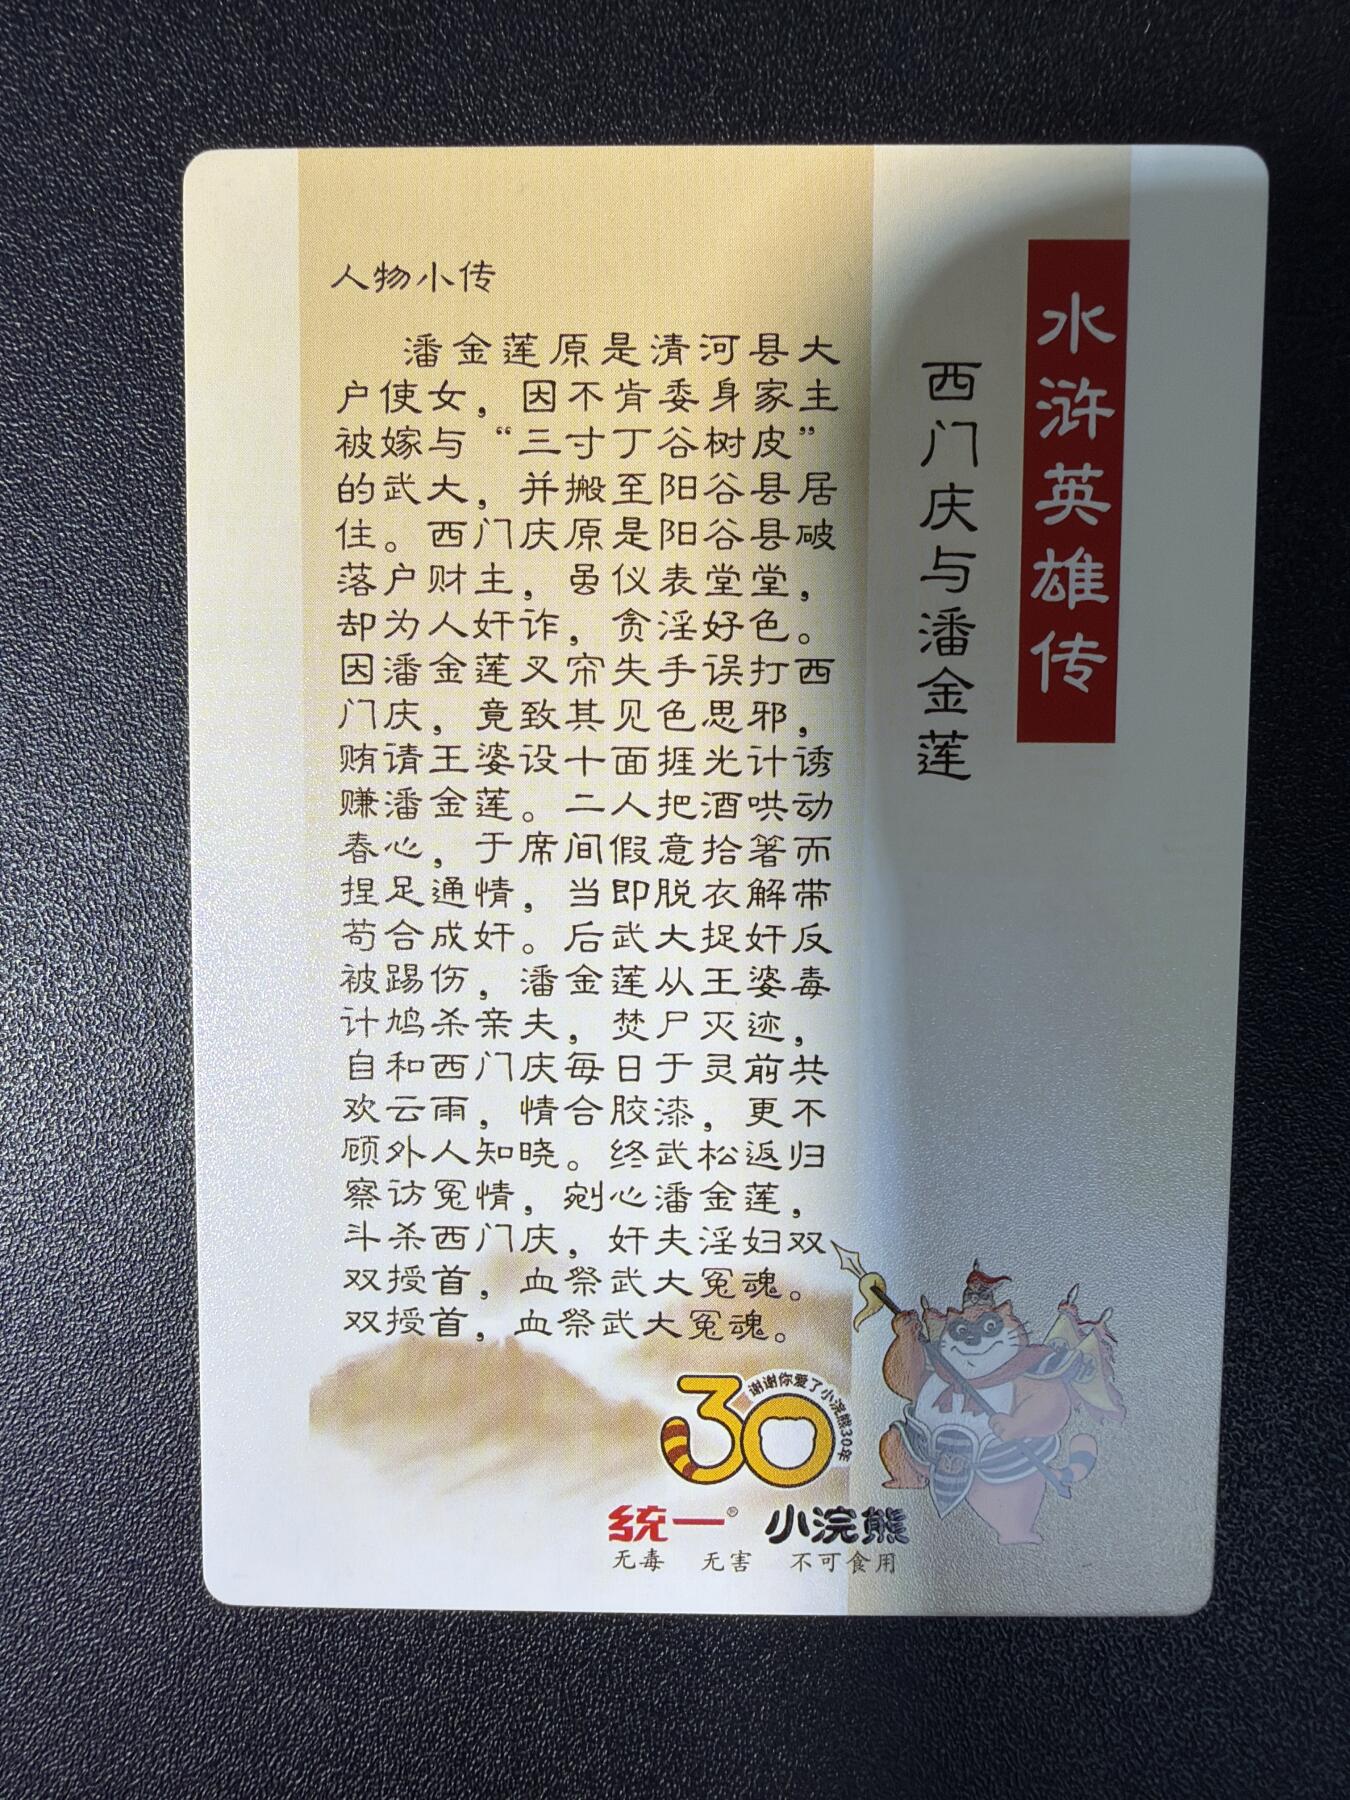 水浒英雄传
西门庆与潘金莲
人物小传
潘金莲原是清河县大
户使女，因不肯委身家主
被嫁与“三寸丁谷树皮”
的武大，并搬至阳谷县居
住。西门庆原是阳谷县破
落户财主，虽仪表堂堂，
却为人奸诈，贪淫好色。
因潘金莲叉帘失手误打西
门庆，竟致其见色思邪，
贿请王婆设十面捱光计诱
赚潘金莲。二人把酒哄动
春心，于席间假意拾箸而
捏足通情，当即脱衣解带
苟合成奸。后武大捉奸反
被踢伤，潘金莲从王婆毒
计鸠杀亲夫，焚尸灭迹，
自和西门庆每日于灵前共
欢云雨，情合胶漆，更不
顾外人知晓。终武松返归
察访冤情，剜心潘金莲，
斗杀西门庆，奸夫淫妇双
双授首，血祭武大冤魂。
双授首，血祭武大冤魂。
30
谢谢你爱了小浣熊30年
统一® 小浣熊
无毒 无害 不可食用